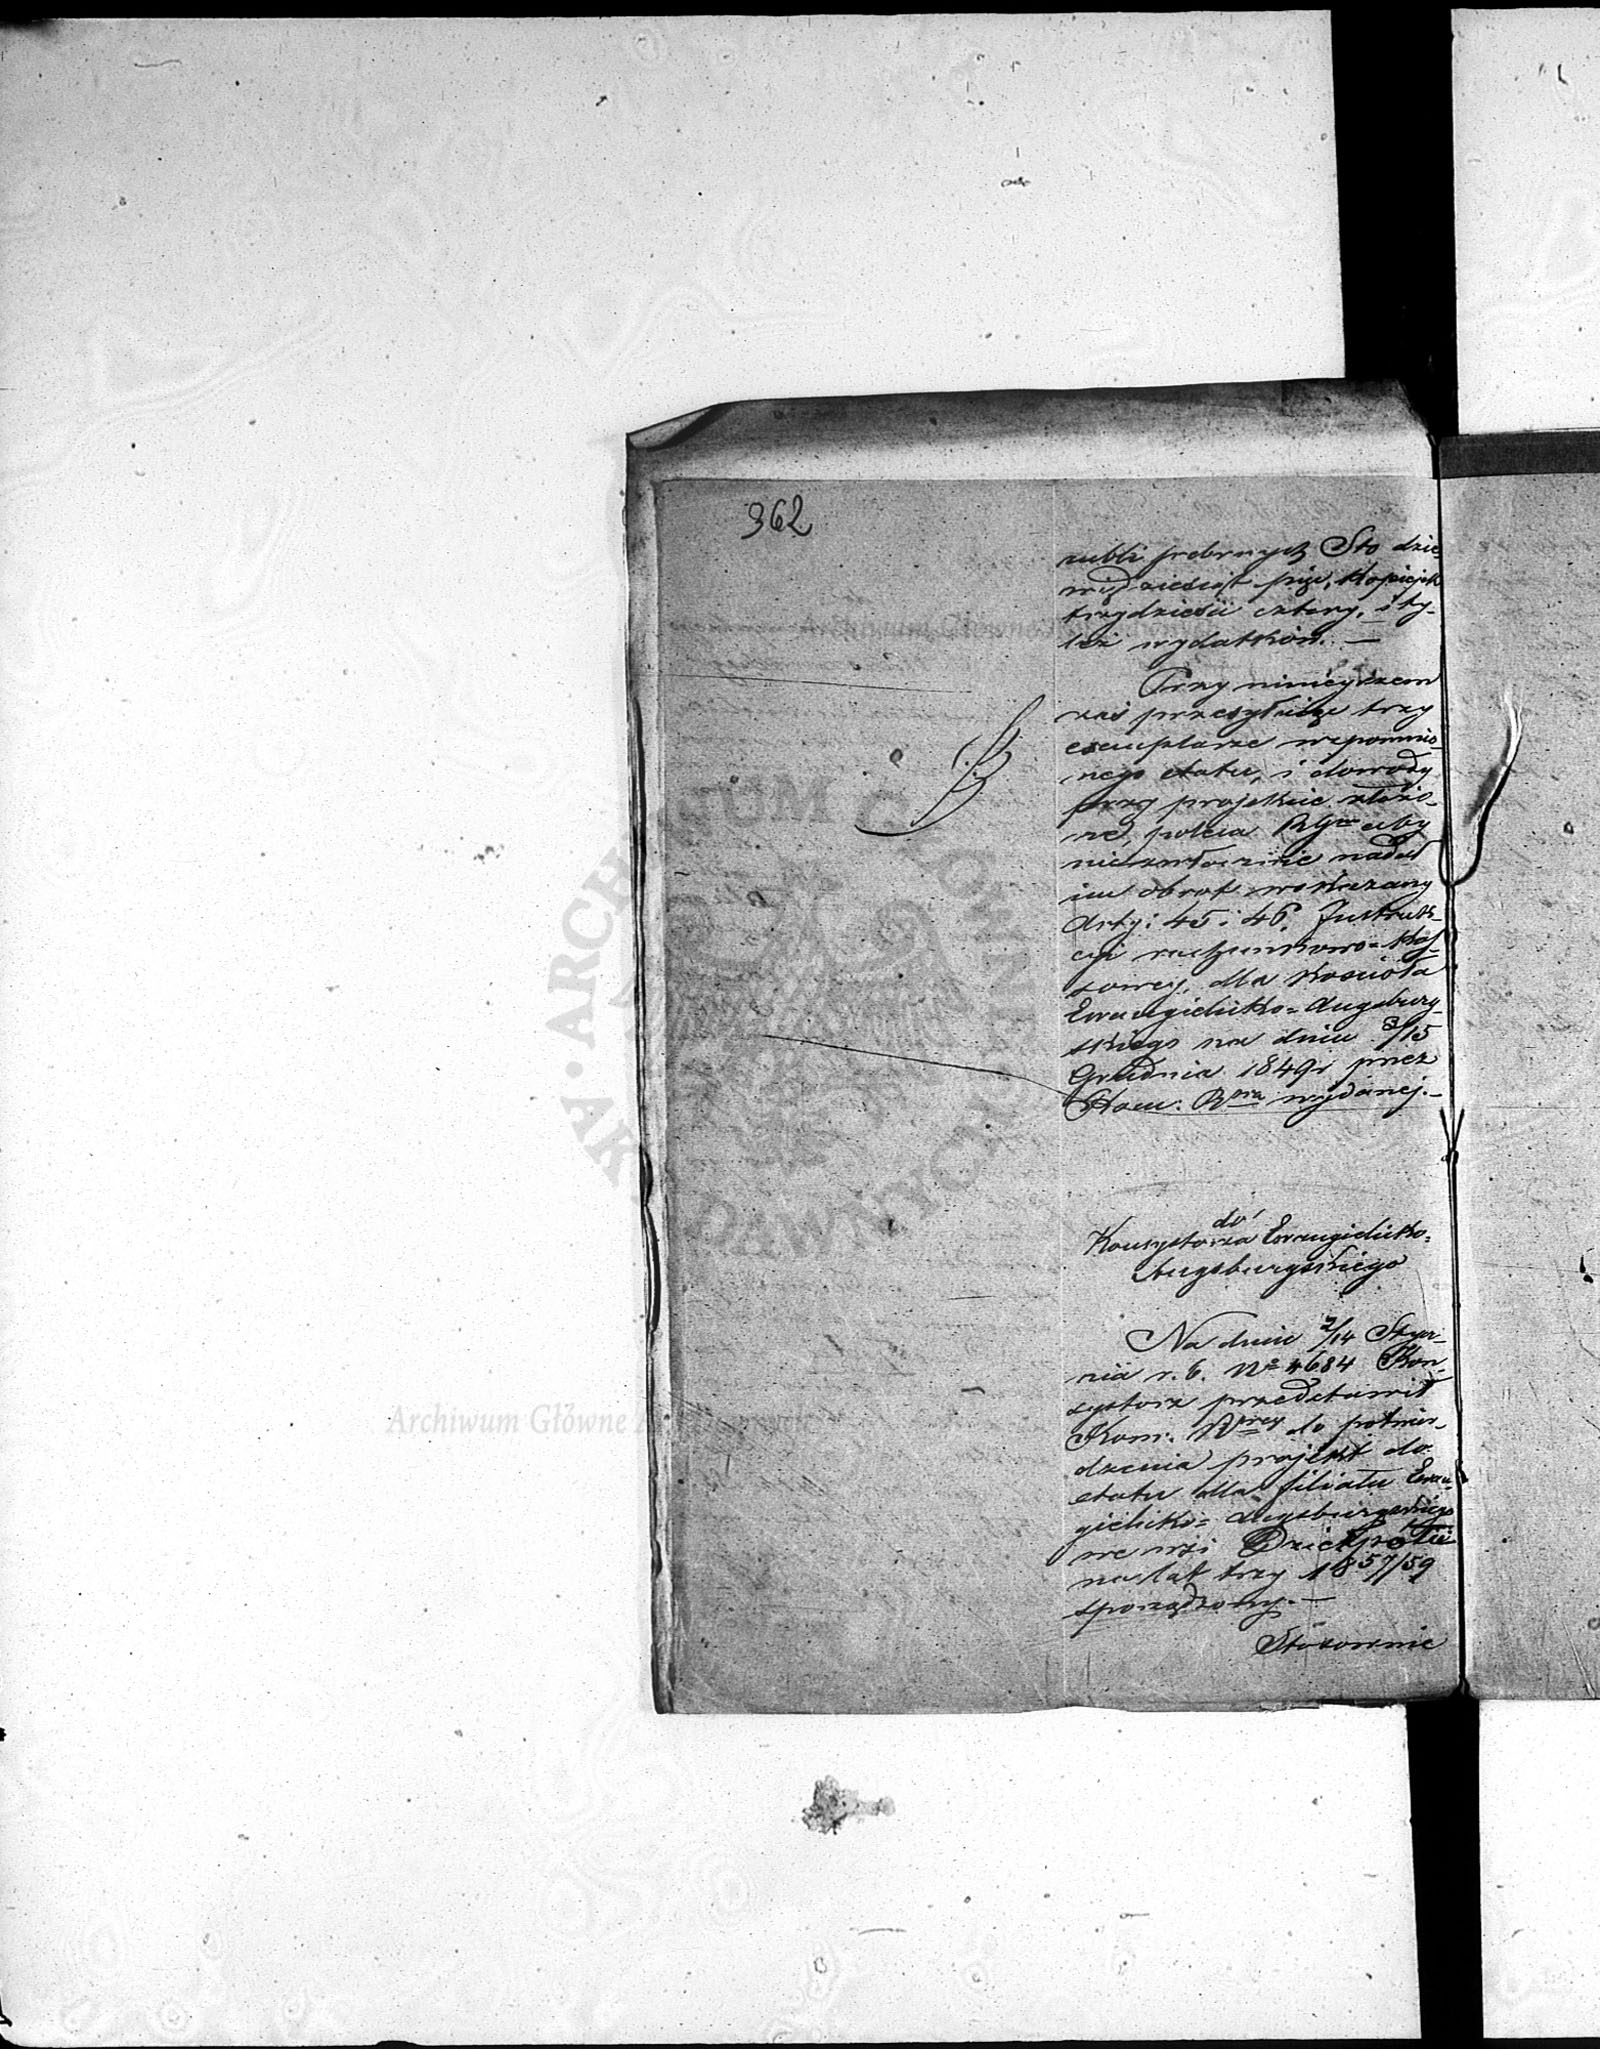 362
rubli srebrnych Sto dzie-
więdziesiąt pięć, kopiejek
trzydzieści cztery, i ty-
leż wydatków. —
Przy niniejszem
zaś przesyłając trzy
exemplarze wspomnio-
nego etatu, i dowody
przy projekcie złożo-
ne, poleca aby
niezwłocznie nadał
im obrót wskazany
Arty: 45 i 46. Instruk-
cji rachunkowo-kas-
sowej, dla Kościoła
Ewangielicko-Augsburg-
skiego na dniu 3/15
Grudnia 1849 r przez
Kom: Rzą wydanej.—
do
Konsystorza Ewangielicko-
Augsburgskiego
Na dniu 2/14 Stycz-
nia r. b. No 4684 Kon-
systorz przedstawił
Kom: Rząwej do potwier-
dzenia projekt do
etatu dla filiału Ewan-
gielicko-Augsburgskiego
we wsi
na lat trzy 1857/59
sporządzony.—
Stósownie
Archiwum Główne Akt Dawnych